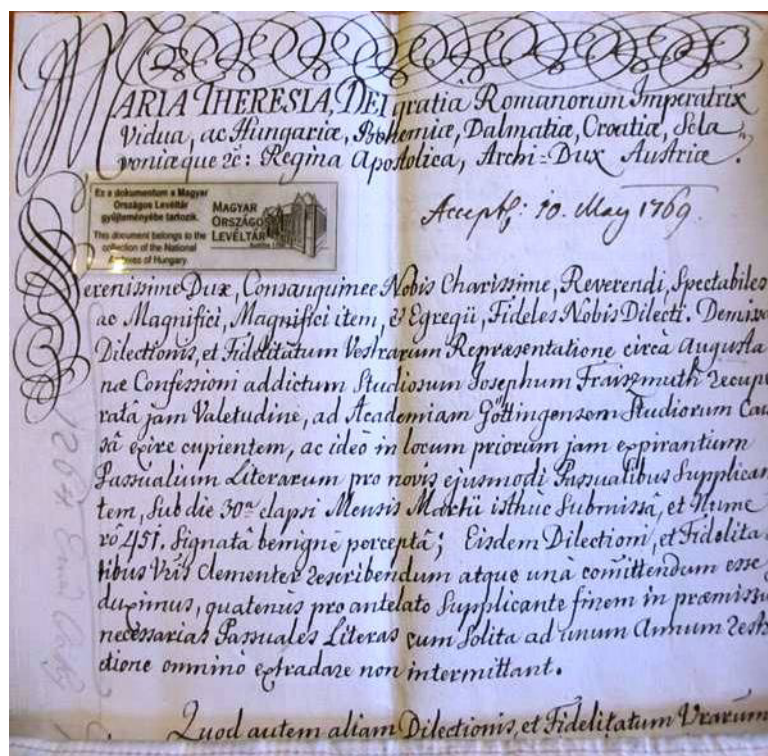 MARIA THERESIA, DEI gratiâ Romanorum Imperatrix
Vidua, ac Hungariæ, Bohemiæ, Dalmatiæ, Croatiæ, Scla„
voniæque &c: Regina Apostolica, Archi=Dux Austriæ.
Ez a dokumentum a Magyar
Országos Levéltár
gyűjteményébe tartozik.
This document belongs to the
collection of the National
Archives of Hungary.
MAGYAR
ORSZÁGO
LEVÉLTÁR
Accept: 10. May 1769.
Serenissime Dux, Consanguinee Nobis Charissime, Reverendi, Spectabiles
ac Magnifici, Magnifici item, & Egregii, Fideles Nobis Dilecti. Demissa
Dilectionis, et Fidelitatum Vestrarum Repræsentatione circà Augusta
næ Confessioni addictum Studiosum Josephum Fraiszmuth recupe
ratâ jam Valetudine, ad Academiam Göttingensem Studiorum Cau
sâ exire cupientem, ac ideò in locum priorum jam expirantium
Passualium Literarum pro novis ejusmodi Passualibus Supplican
tem, sub die 30ª elapsi Mensis Martii isthuc Submissâ, et Nume
rô 451. Signatâ benignè perceptâ; Eisdem Dilectioni, et Fidelita
tibus Vris Clementer rescribendum atque unà comittendum esse
duximus, quatenus pro antelato Supplicante finem in præmissum
necessarias Passuales Literas cum Solita ad unum Annum restri
ctione omninò extradare non intermittant.
Quod autem aliam Dilectionis, et Fidelitatum Vrarum